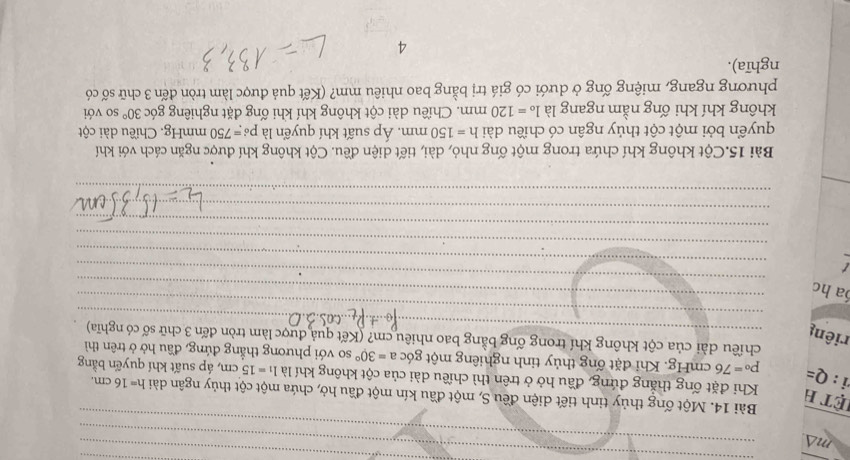 mA
IỆT H
i : Q=
riêng
óa họ
Bài 14. Một ống thủy tinh tiết diện đều S, một đầu kín một đầu hở, chứa một cột thủy ngân dài h= 16 cm.
Khi đặt ống thẳng đứng, đầu hở ở trên thì chiều dài của cột không khí là l₁ = 15 cm, áp suất khí quyển bằng
p₀ = 76 cmHg. Khi đặt ống thủy tinh nghiêng một góc a = 30° so với phương thẳng đứng, đầu hở ở trên thì
chiều dài của cột không khí trong ống bằng bao nhiêu cm? (Kết quả được làm tròn đến 3 chữ số có nghĩa)
L₂ = 15,35 cm
Bài 15.Cột không khí chứa trong một ống nhỏ, dài, tiết diện đều. Cột không khí được ngăn cách với khí
quyển bởi một cột thủy ngân có chiều dài h = 150 mm. Áp suất khí quyển là p₀ = 750 mmHg. Chiều dài cột
không khí khi ống nằm ngang là l₀ = 120 mm. Chiều dài cột không khí khi ống đặt nghiêng góc 30° so với
phương ngang, miệng ống ở dưới có giá trị bằng bao nhiêu mm? (Kết quả được làm tròn đến 3 chữ số có
nghĩa).
L = 133,3
4